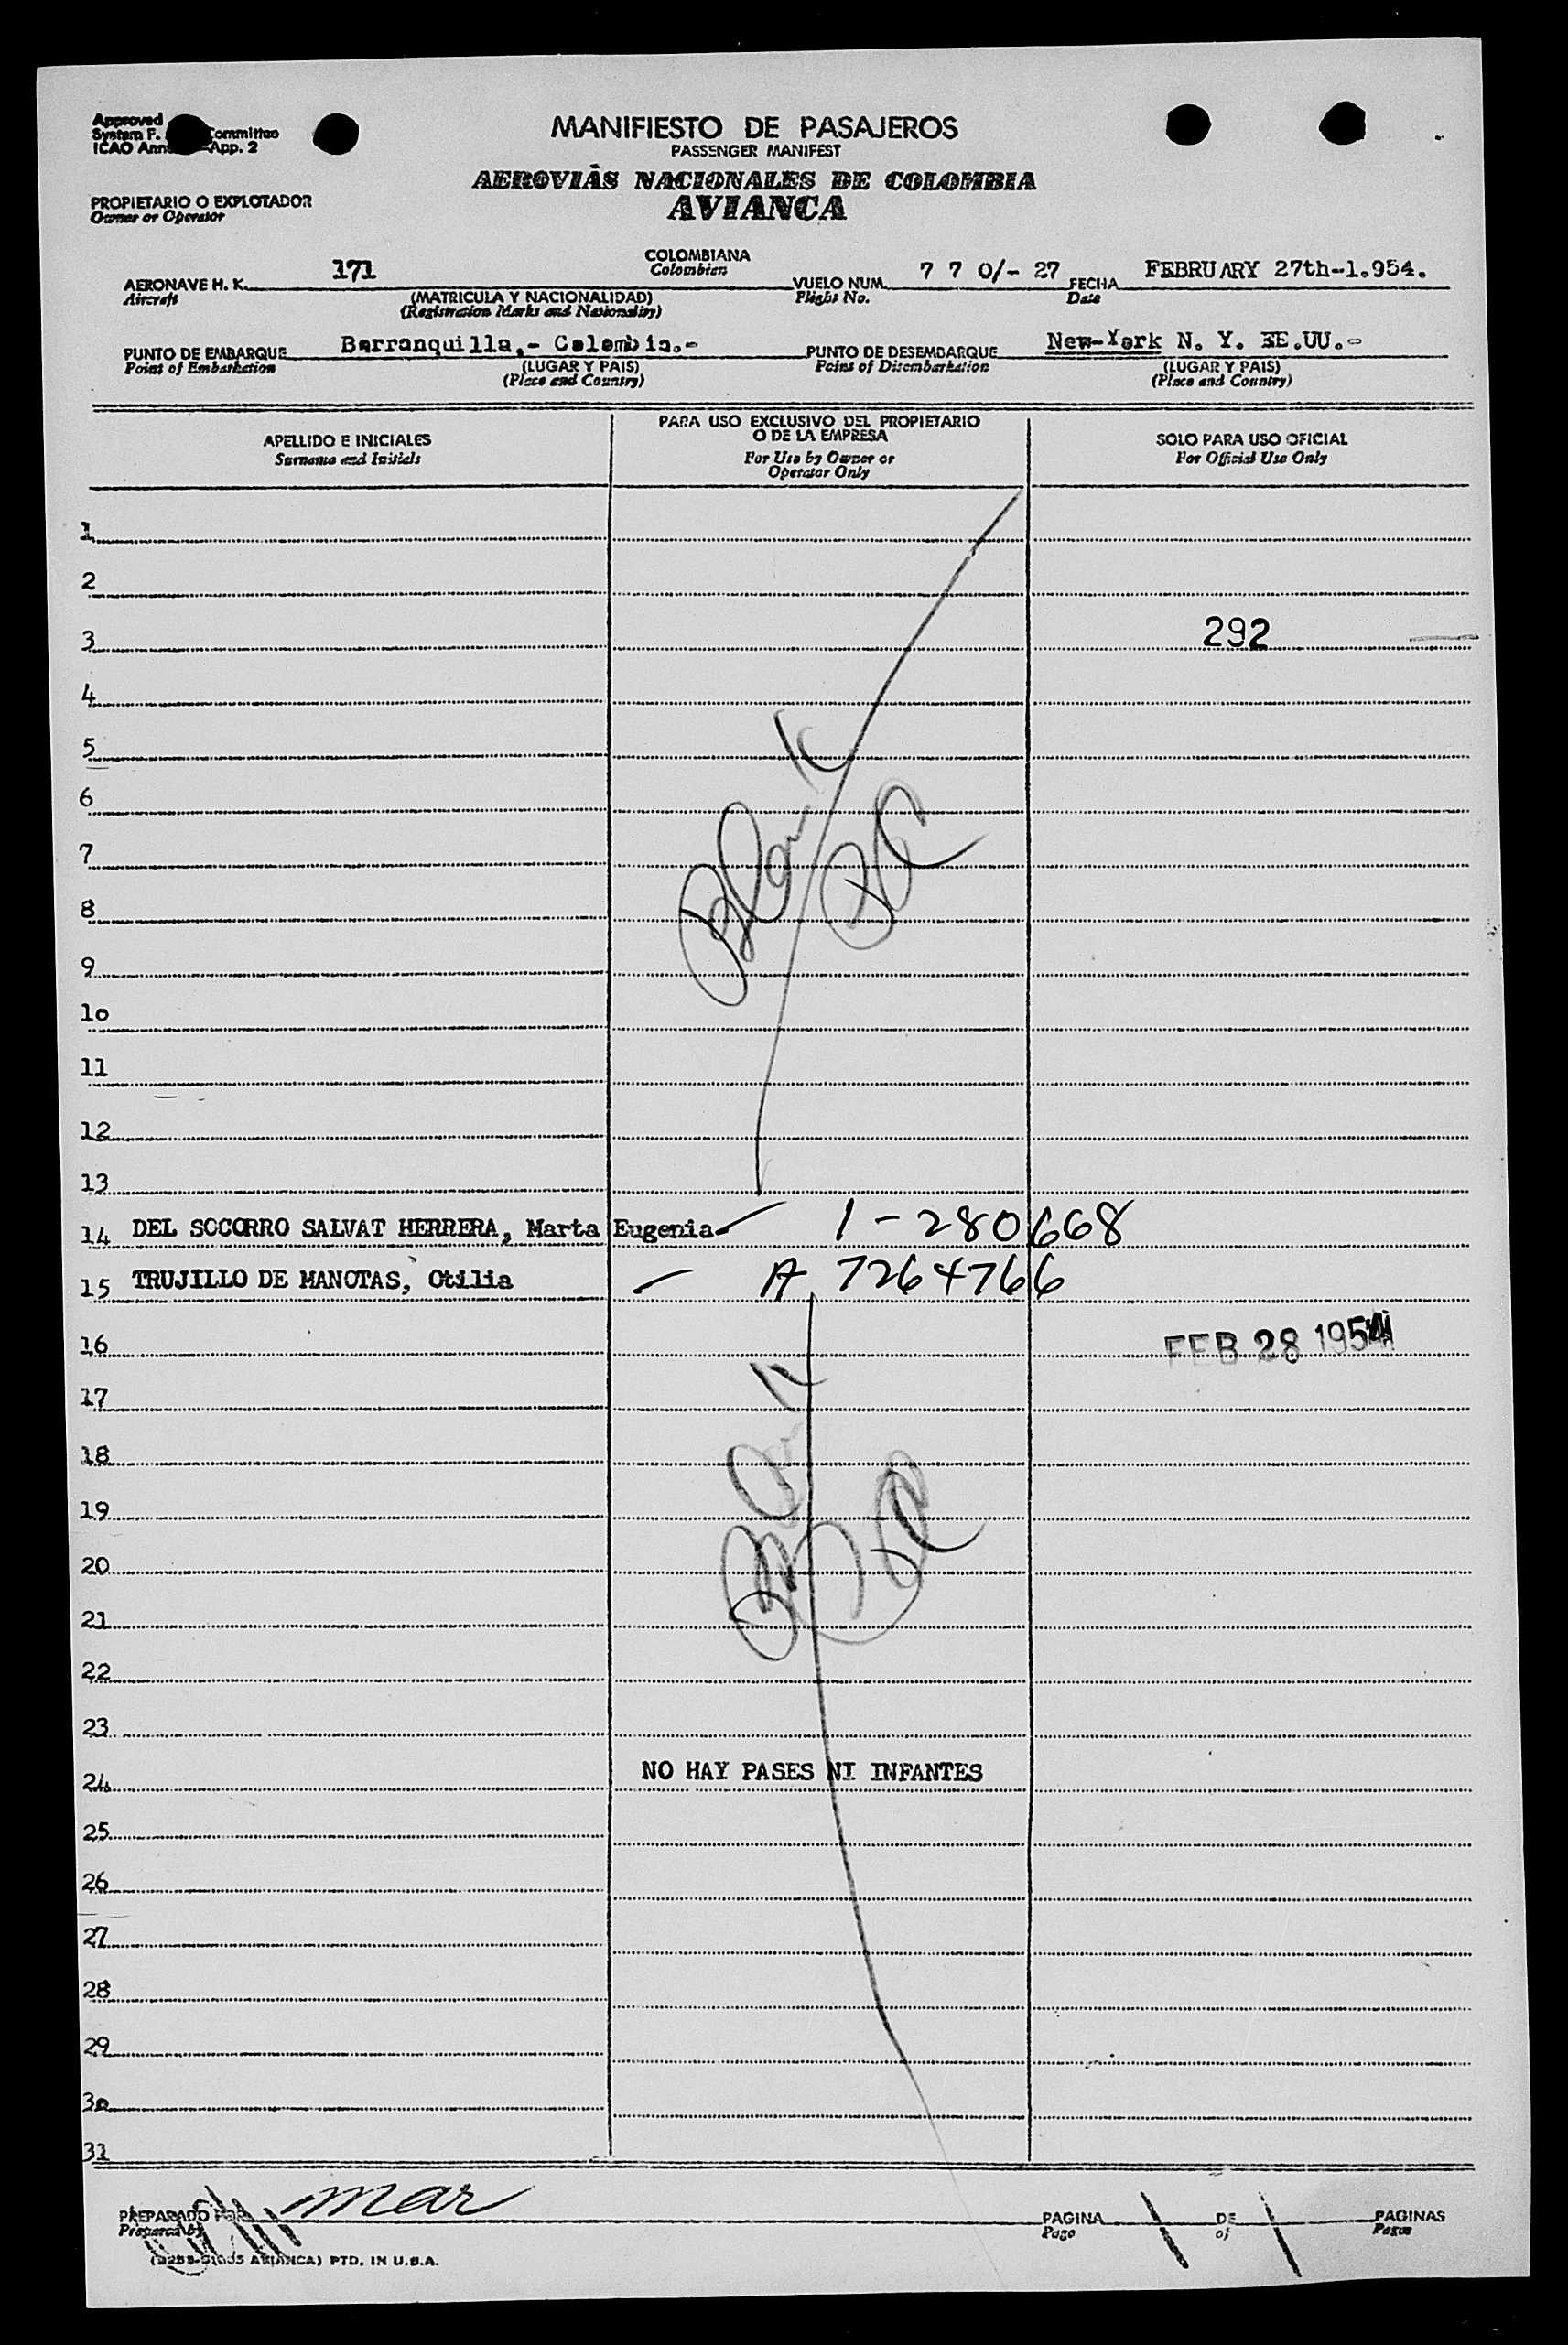 Approved
System F. Committee
ICAO Ann App. 2
MANIFIESTO DE PASAJEROS
PASSENGER MANIFEST
AEROVIAS NACIONALES DE COLOMBIA
AVIANCA
PROPIETARIO O EXPLOTADOR
Owner or Operator
AERONAVE H. K. 171 COLOMBIANA VUELO NUM. 7 7 0/- 27 FECHA FEBRUARY 27th-1.954.
Aircraft Colombian Flight No. Date
(MATRICULA Y NACIONALIDAD)
(Registration Marks and Nationality)
PUNTO DE EMBARQUE Barranquilla,- Colombia.- PUNTO DE DESEMBARQUE New-York N. Y. EE.UU.-
Point of Embarkation (LUGAR Y PAIS) Point of Disembarkation (LUGAR Y PAIS)
(Place and Country) (Place and Country)
APELLIDO E INICIALES
Surname and Initials
PARA USO EXCLUSIVO DEL PROPIETARIO
O DE LA EMPRESA
For Use by Owner or
Operator Only
SOLO PARA USO OFICIAL
For Official Use Only
1
2
3 292
4
5
6
7
8
Blank
9
10
11
12
13
14 DEL SOCORRO SALVAT HERRERA, Marta Eugenia 1-280668
15 TRUJILLO DE MANOTAS, Otilia A 7264766
16 FEB 28 1954
17
18
19
20
Blank
21
22
23
24 NO HAY PASES NI INFANTES
25
26
27
28
29
30
31
PREPARADO POR mar PAGINA 1 DE 1 PAGINAS
Prepared by Page of Pages
AVIANCA) PTD. IN U.S.A.